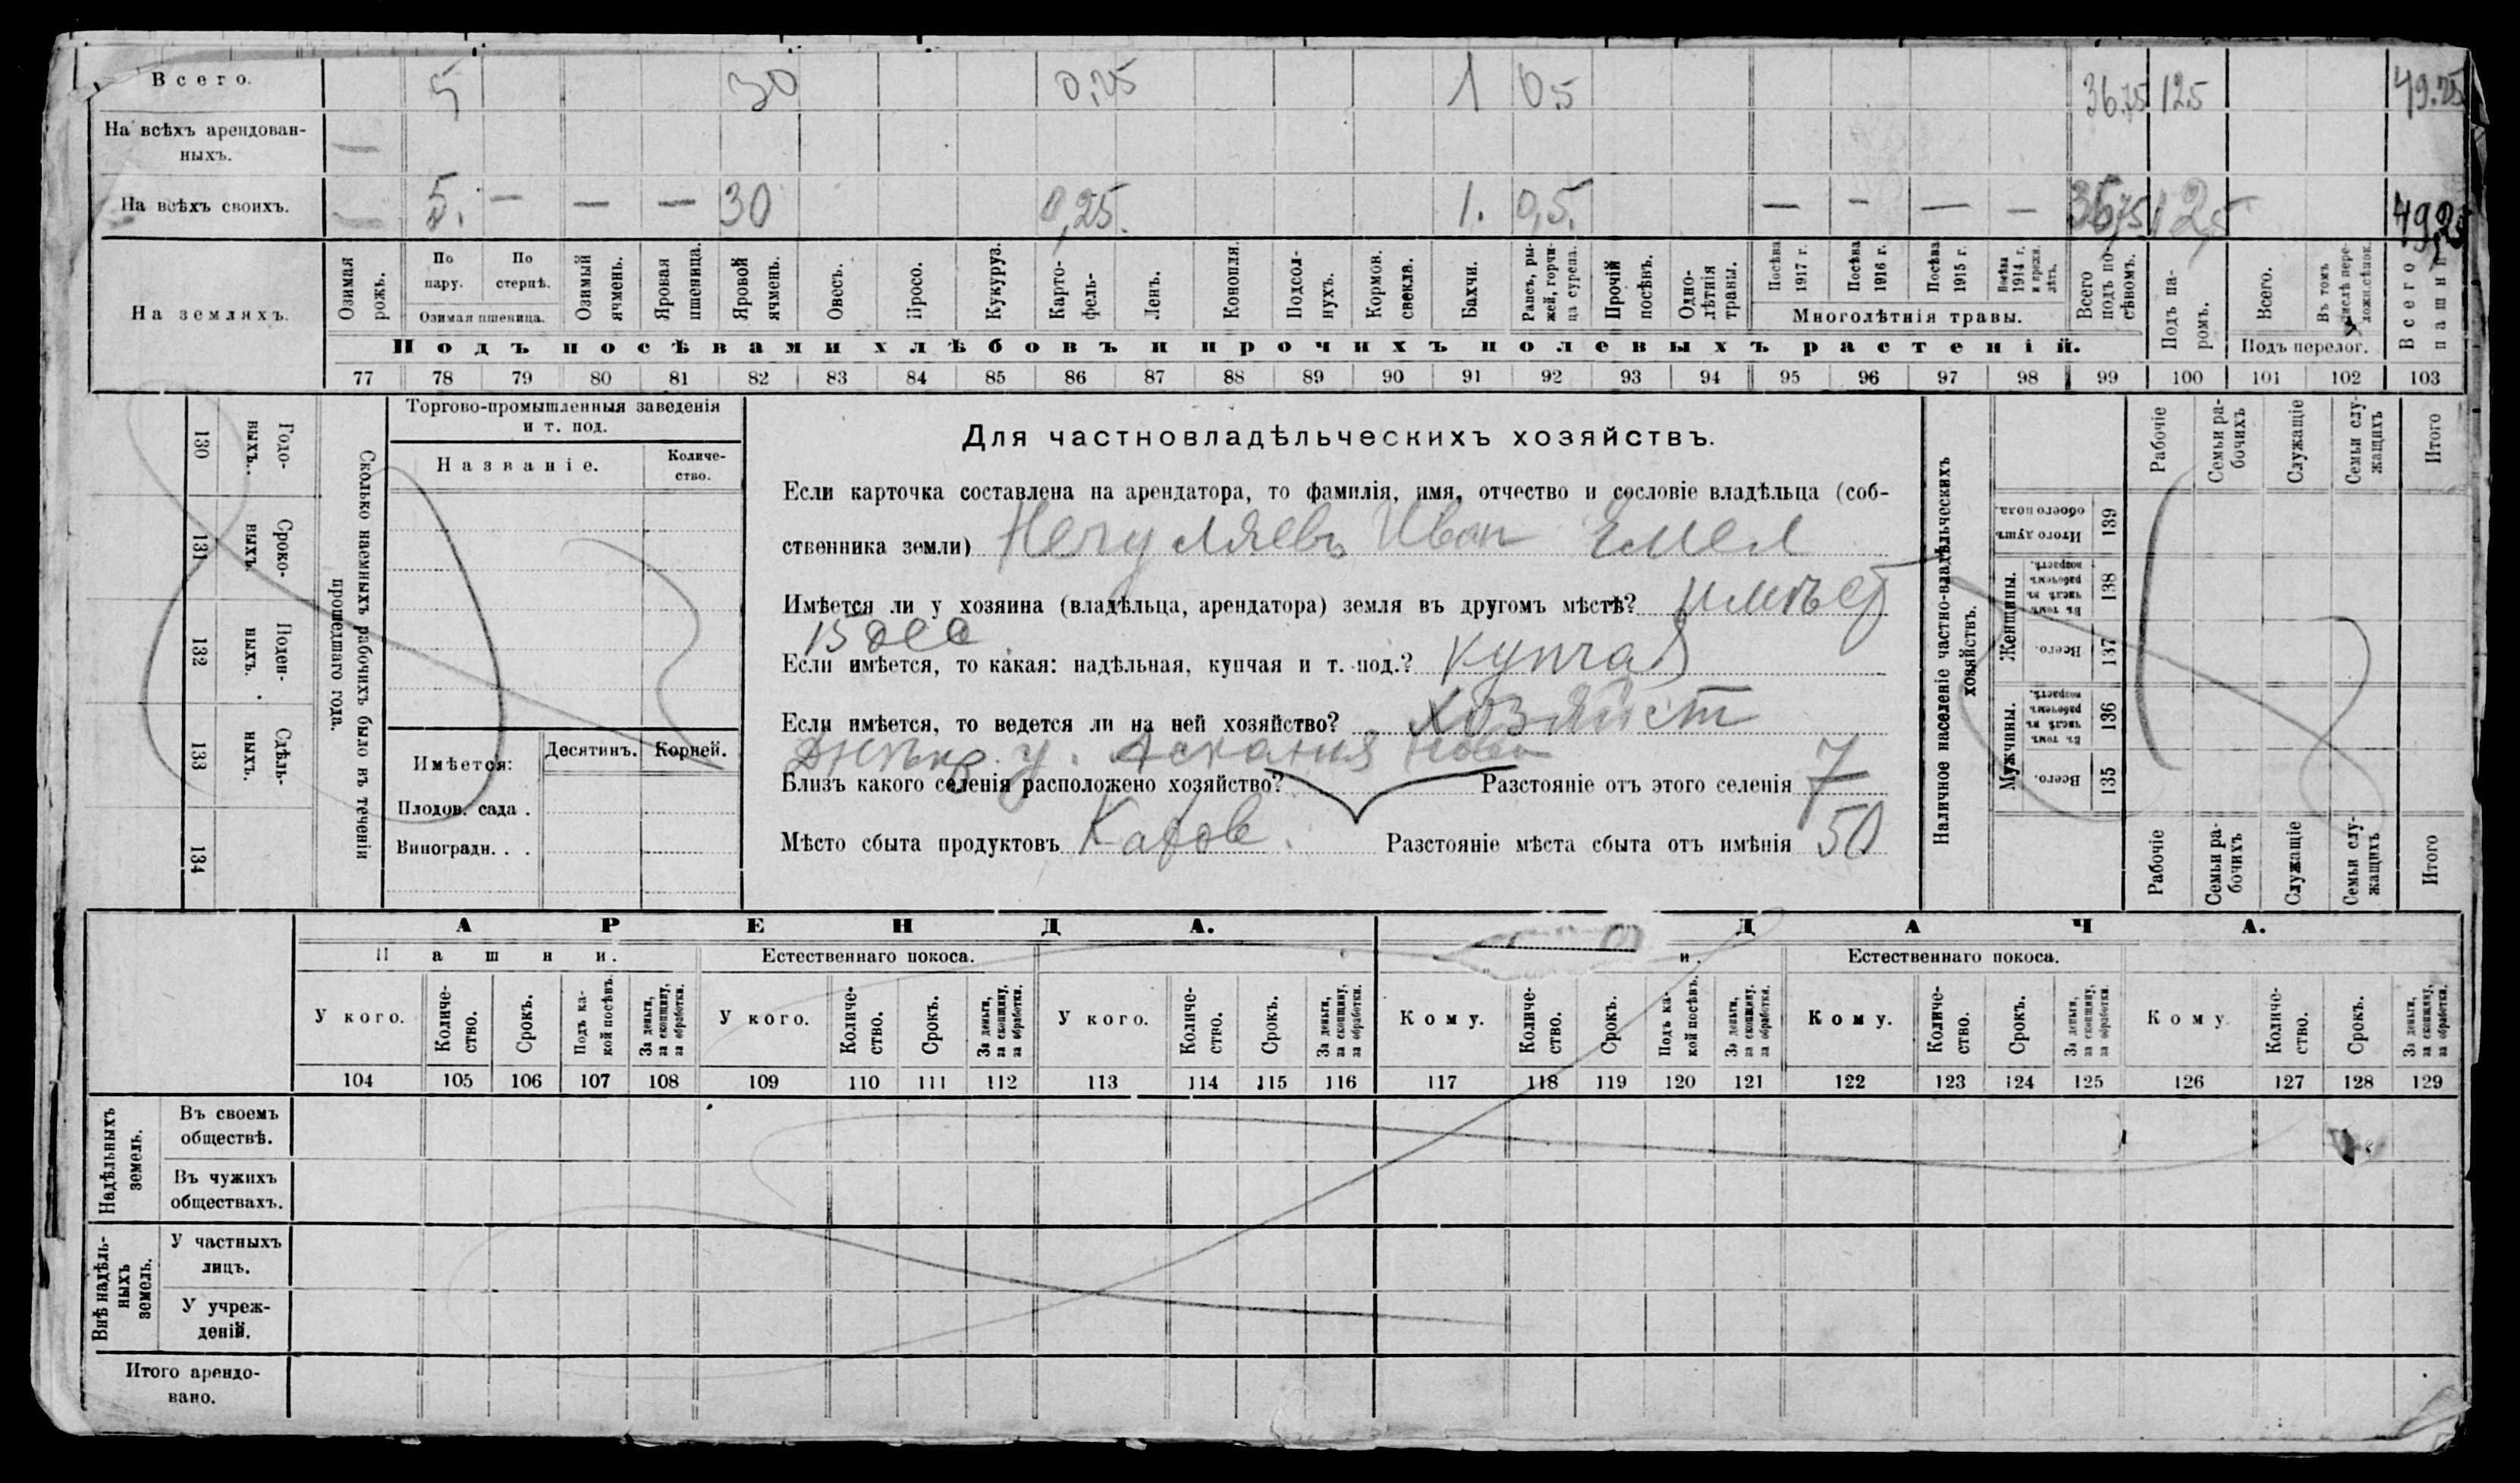 Всего. 5 30 0,25 1 0.5 36.75 12.5 49.25
На всѣхъ арендован-
ныхъ. —
На всѣхъ своихъ. — 5. — — — 30 0,25. 1. 0,5. — — — — 36,75 12,5 49,25
На земляхъ.
Озимая рожь.
По пару.
По стернѣ.
Озимая пшеница.
Озимый ячмень.
Яровая пшеница.
Яровой ячмень.
Овесъ.
Просо.
Кукуруз.
Карто-
фель-
Ленъ.
Конопля.
Подсол-
нухъ.
Кормов.
свекла.
Бахчи.
Рапсъ, ры-
жей, горчи-
ца сурепа.
Прочій
посѣвъ.
Одно-
лѣтнія
травы.
Посѣва
1917 г.
Посѣва
1916 г.
Посѣва
1915 г.
Посѣва
1914 г.
и прежн.
лѣтъ.
Многолѣтнія травы.
Всего
подъ по-
сѣвомъ.
Подъ па-
ромъ.
Всего.
Въ томъ
числѣ пере-
ложн. сѣнок.
Подъ перелог.
Всего
пашни
Подъ посѣвами хлѣбовъ и прочихъ полевыхъ растеній.
77 78 79 80 81 82 83 84 85 86 87 88 89 90 91 92 93 94 95 96 97 98 99 100 101 102 103
130 131 132 133 134
Годо-
выхъ.
Сроко-
выхъ.
Поден-
ныхъ.
Сдѣль-
ныхъ.
Сколько наемныхъ рабочихъ было въ теченіи
прошедшаго года.
Торгово-промышленныя заведенія
и т. под.
Названіе.
Количе-
ство.
Имѣется:
Десятинъ. Корней.
Плодов. сада .
Виноградн. . .
Для частновладѣльческихъ хозяйствъ.
Если карточка составлена на арендатора, то фамилія, имя, отчество и сословіе владѣльца (соб-
ственника земли) Нечуляевъ Иван Емел
Имѣется ли у хозяина (владѣльца, арендатора) земля въ другомъ мѣстѣ? имѣет
15 дес
Если имѣется, то какая: надѣльная, купчая и т. под.? купчая
Если имѣется, то ведется ли на ней хозяйство? хозяйст
Днѣпр. у. Аскания Нова
Близъ какого селенія расположено хозяйство? Разстояніе отъ этого селенія 7
Мѣсто сбыта продуктовъ Кахов. Разстояніе мѣста сбыта отъ имѣнія 50
Наличное населеніе частно-владѣльческихъ
хозяйствъ.
Рабочіе
Семьи ра-
бочихъ
Служащіе
Семьи слу-
жащихъ
Итого
Итого душъ
обоего пола.
139
Женщины.
Въ томъ
числѣ въ
рабочемъ
возрастѣ.
138
Всего.
137
Мужчины.
Въ томъ
числѣ въ
рабочемъ
возрастѣ.
136
Всего.
135
Рабочіе
Семьи ра-
бочихъ
Служащіе
Семьи слу-
жащихъ
Итого
АРЕНДА. ДАЧА.
Пашни. Естественнаго покоса. и. Естественнаго покоса.
У кого.
Количе-
ство.
Срокъ.
Подъ ка-
кой посѣвъ.
За деньги,
за скопщину,
за обработки.
У кого.
Количе-
ство.
Срокъ.
За деньги,
за скопщину,
за обработки.
У кого.
Количе-
ство.
Срокъ.
За деньги,
за скопщину,
за обработки.
Кому.
Количе-
ство.
Срокъ.
Подъ ка-
кой посѣвъ.
За деньги,
за скопщину.
за обработки.
Кому.
Количе-
ство.
Срокъ.
За деньги,
за скопщину,
за обработки
Кому.
Количе-
ство.
Срокъ.
За деньги,
за скопщину,
за обработки.
104 105 106 107 108 109 110 111 112 113 114 115 116 117 118 119 120 121 122 123 124 125 126 127 128 129
Надѣльныхъ
земель.
Въ своемъ
обществѣ.
Въ чужихъ
обществахъ.
Внѣ надѣль-
ныхъ
земель.
У частныхъ
лицъ.
У учреж-
деній.
Итого арендо-
вано.